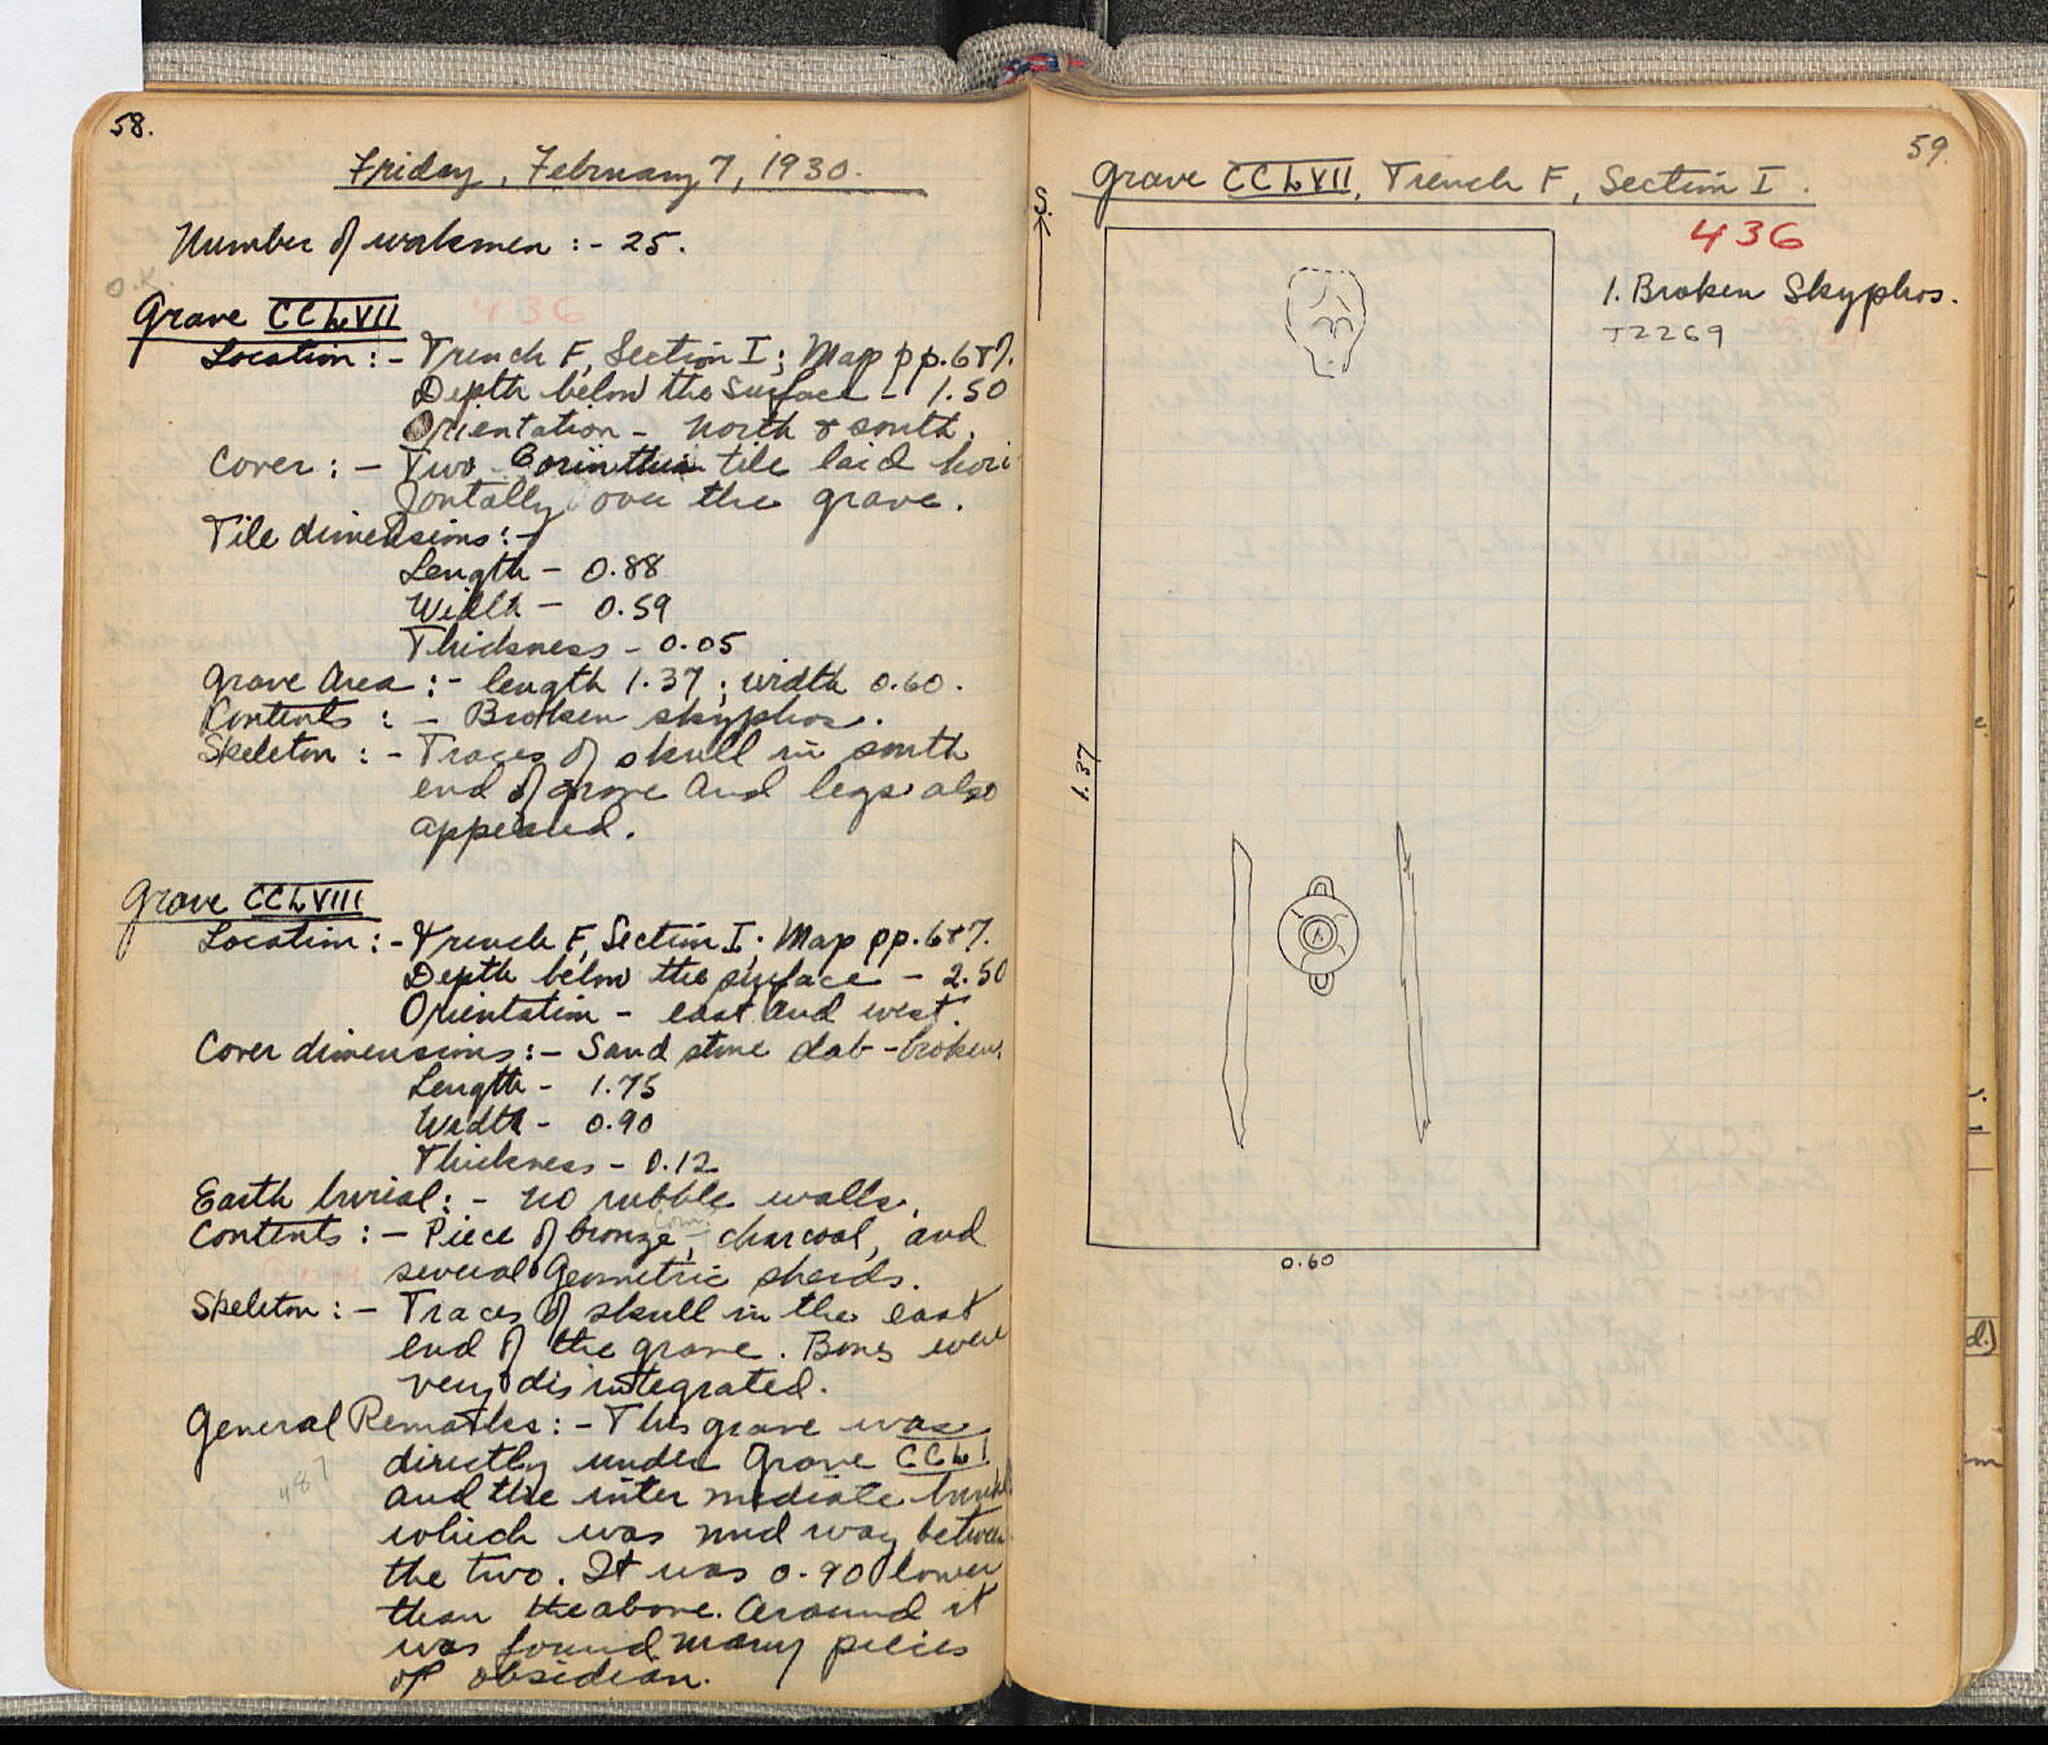 58.
Friday, February 7, 1930.
Number of workmen :- 25.
O.K.
Grave CCLVII
436
Location :- Trench F, Section I; Map pp. 6 & 7.
Depth below the surface - 1.50
Orientation - North & south.
Cover :- Two Corinthian tile laid hori
zontally over the grave.
Tile dimensions :-
Length - 0.88
Width - 0.59
Thickness - 0.05
Grave Area :- length 1.37 ; width 0.60.
Contents :- Broken skyphos.
Skeleton :- Traces of skull in south
end of grave and legs also
appeared.
Grave CCLVIII
Location :- Trench F, Section I; Map pp. 6 & 7.
Depth below the surface - 2.50
Orientation - east and west.
Cover dimensions :- Sand stone slab - broken.
Length - 1.75
Width - 0.90
Thickness - 0.12
Earth burial :- no rubble walls.
Contents :- Piece of bronze, charcoal, and
several Geometric sherds.
Skeleton :- Traces of skull in the east
end of the grave. Bones were
very disintegrated.
General Remarks :- This grave was
directly under Grave CCLI
487
and the inter mediate burial
which was mid way between
the two. It was 0.90 lower
than the above. Around it
was found many pieces
of obsidian.
59.
Grave CCLVII, Trench F, Section I.
S.
436
1. Broken Skyphos.
T2269
1.37
1
0.60